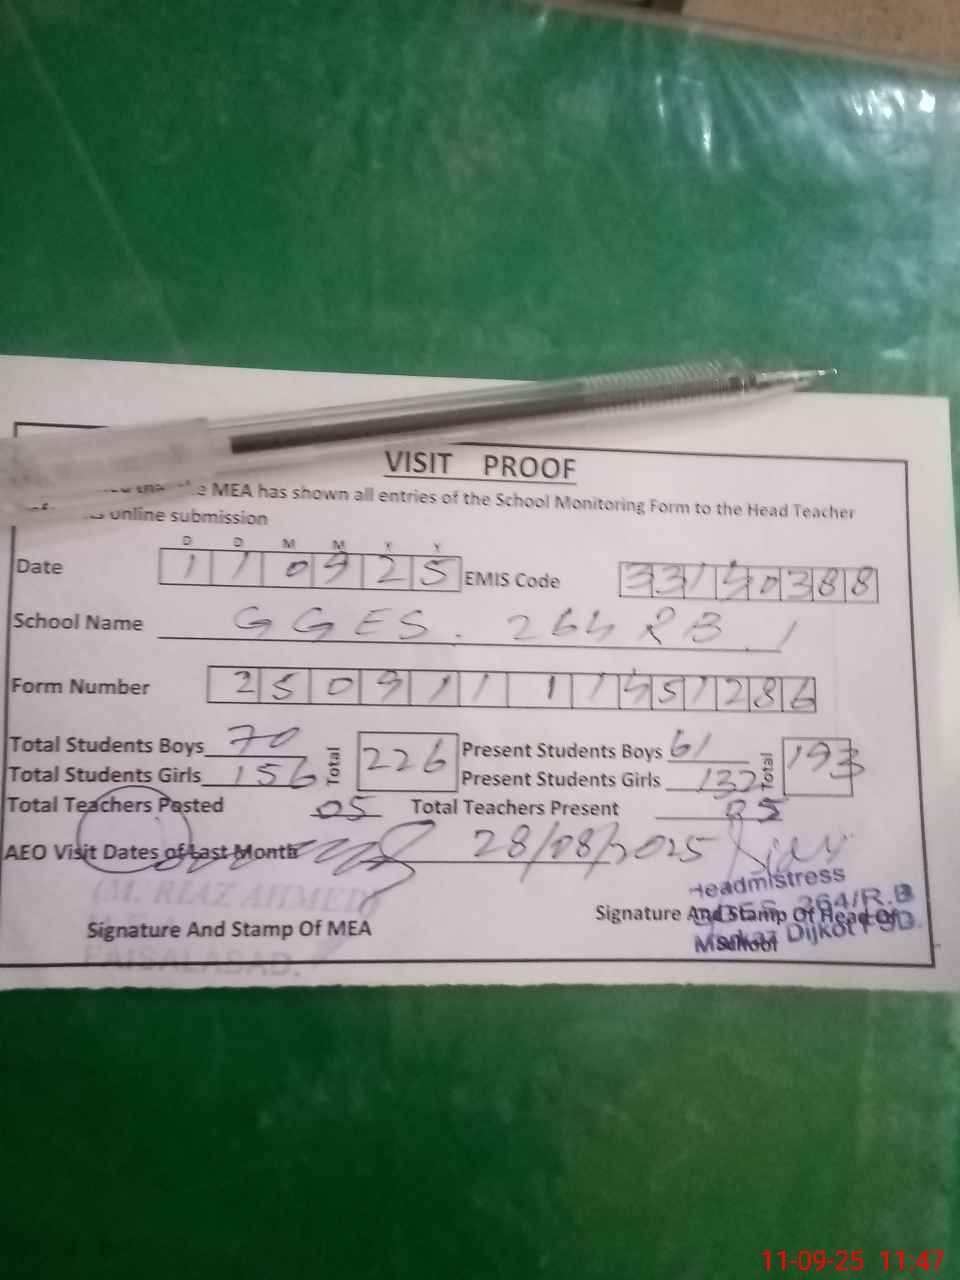 VISIT PROOF
MEA has shown all entries of the School Monitoring Form to the Head Teacher
online submission
D D M M Y Y
Date 110925 EMIS Code 33140388
School Name GGES. 264 RB 1
Form Number
Total Students Boys 70 Total 226 Present Students Boys 61 Total 193
Total Students Girls 156 Present Students Girls 132
Total Teachers Posted 05 Total Teachers Present 05
AEO Visit Dates of Last Month 28/08/2025
(M. RIAZ AHMED)
Headmistress
264/R.B
Signature And Stamp Of MEA Signature And Stamp Of Head Of
School
Markaz Dijkot FSD.
FAISALABAD.
11-09-25 11:47